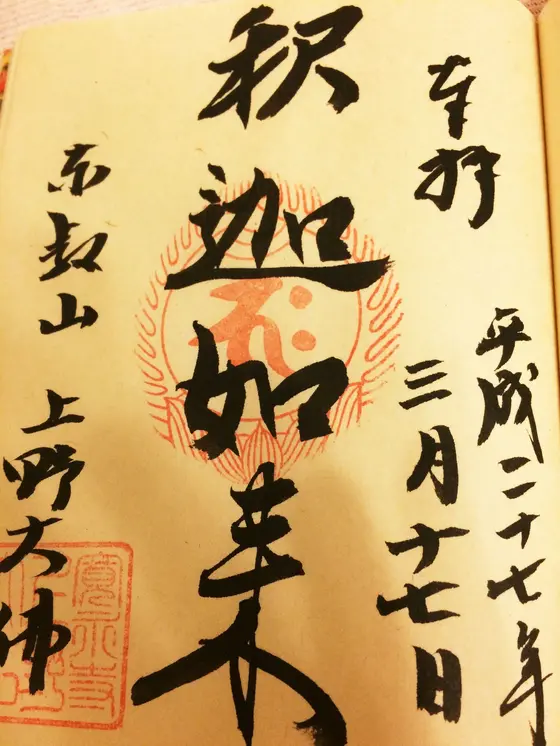 奉拝
平成二十七年
三月十七日
釈迦如来
東叡山 上野大佛